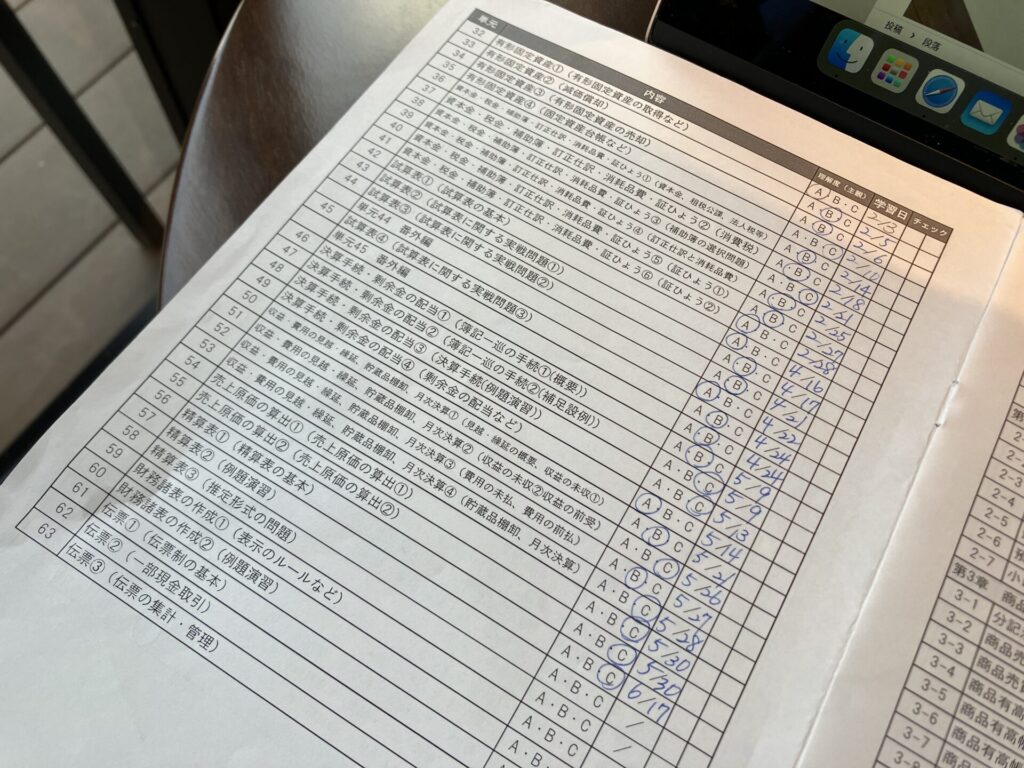 単元 内容 理解度(主観) 学習日 チェック
32 有形固定資産①(有形固定資産の取得など)
33 有形固定資産②(減価償却)
34 有形固定資産③(有形固定資産の売却)
35 有形固定資産④(固定資産台帳など)
36 資本金・税金・補助簿・訂正仕訳・消耗品費・証ひょう①(資本金、租税公課、法人税等)
37 資本金・税金・補助簿・訂正仕訳・消耗品費・証ひょう②(消費税)
資本金・税金・補助簿・訂正仕訳・消耗品費・証ひょう③(補助簿の選択問題)
39 資本金・税金・補助簿・訂正仕訳・消耗品費・証ひょう④(訂正仕訳と消耗品費)
40 資本金・税金・補助簿・訂正仕訳・消耗品費・証ひょう⑤(証ひょう①)
41 資本金・税金・補助簿・訂正仕訳・消耗品費・証ひょう⑥(証ひょう②)
42 試算表①(試算表の基本)
43 試算表②(試算表に関する実戦問題①)
44 試算表③(試算表に関する実戦問題②)
単元44 番外編
45 試算表④(試算表に関する実戦問題③)
単元45 番外編
46 決算手続・剰余金の配当①(簿記一巡の手続①(概要))
47 決算手続・剰余金の配当②(簿記一巡の手続②(補足設例))
48 決算手続・剰余金の配当③(決算手続(例題演習))
49 決算手続・剰余金の配当④(剰余金の配当など)
50 収益・費用の見越・繰延、貯蔵品棚卸、月次決算①(見越・繰延の概要、収益の未収①)
51 収益・費用の見越・繰延、貯蔵品棚卸、月次決算②(収益の未収②収益の前受)
52 収益・費用の見越・繰延、貯蔵品棚卸、月次決算③(費用の未払、費用の前払)
53 収益・費用の見越・繰延、貯蔵品棚卸、月次決算④(貯蔵品棚卸、月次決算)
54 売上原価の算出①(売上原価の算出①)
55 売上原価の算出②(売上原価の算出②)
56 精算表①(精算表の基本)
57 精算表②(例題演習)
58 精算表③(推定形式の問題)
59 財務諸表の作成①(表示のルールなど)
60 財務諸表の作成②(例題演習)
61 伝票①(伝票制の基本)
62 伝票②(一部現金取引)
63 伝票③(伝票の集計・管理)
A・B・C
A・B・C 2/5
A・B・C 2/6
A・B・C 2/14
A・B・C 2/18
A・B・C 2/21
A・B・C
A・B・C 2/28
A・B・C 4/16
A・B・C 4/19
A・B・C 4/21
A・B・C 4/22
A・B・C 4/24
A・B・C 5/9
A・B・C 5/13
A・B・C 5/14
A・B・C 5/21
A・B・C 5/26
A・B・C 5/27
A・B・C 5/28
A・B・C 5/30
A・B・C 5/30
A・B・C 6/17
A・B・C /
A・B・C /
A・B
投稿 › 段落
2-4
2-5
2-6
2-7 小
第3章 商品
3-1 分記
3-2 商品売
3-3 商品売
3-4 商品有高
3-5 商品有高帳
3-6
3-7
3-8